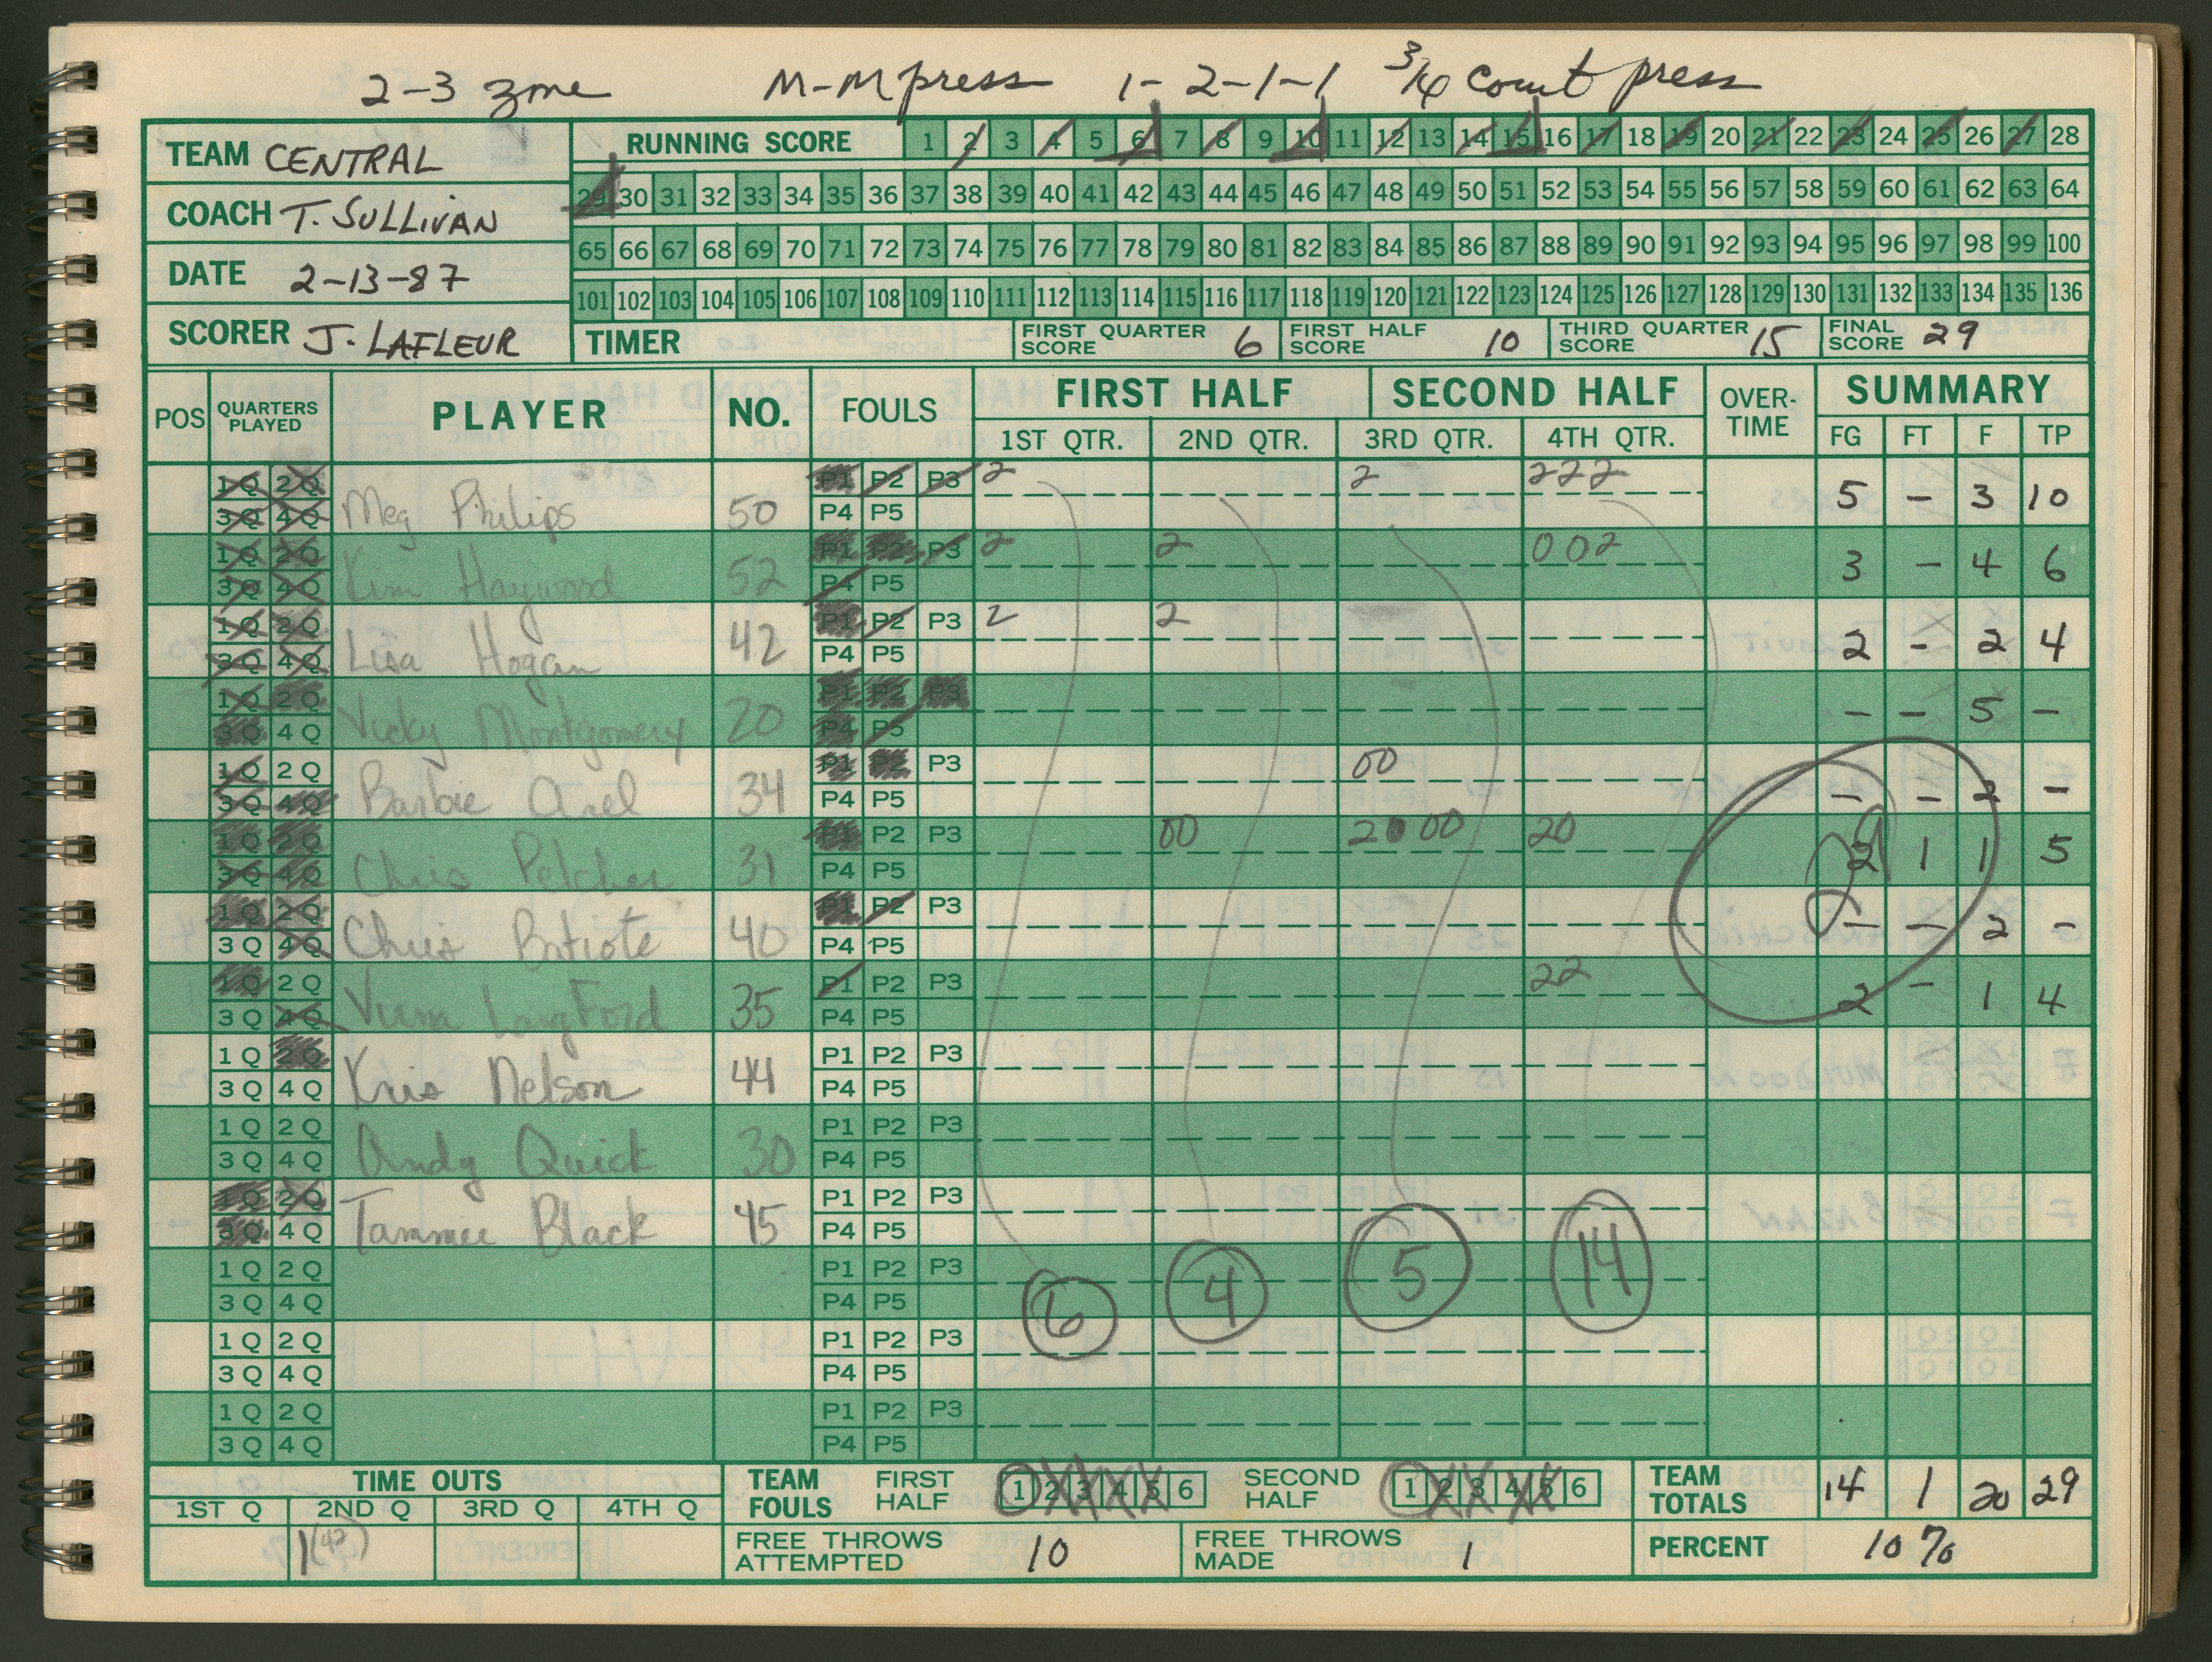 2-3 zone M-M press 1-2-1-1 3/4 Court press
TEAM CENTRAL
COACH T. SULLIVAN
DATE 2-13-87
SCORER J. LAFLEUR
RUNNING SCORE 1 2 3 4 5 6 7 8 9 10 11 12 13 14 15 16 17 18 19 20 21 22 23 24 25 26 27 28
29 30 31 32 33 34 35 36 37 38 39 40 41 42 43 44 45 46 47 48 49 50 51 52 53 54 55 56 57 58 59 60 61 62 63 64
65 66 67 68 69 70 71 72 73 74 75 76 77 78 79 80 81 82 83 84 85 86 87 88 89 90 91 92 93 94 95 96 97 98 99 100
101 102 103 104 105 106 107 108 109 110 111 112 113 114 115 116 117 118 119 120 121 122 123 124 125 126 127 128 129 130 131 132 133 134 135 136
TIMER FIRST QUARTER SCORE 6 FIRST HALF SCORE 10 THIRD QUARTER SCORE 15 FINAL SCORE 29
POS QUARTERS PLAYED PLAYER NO. FOULS FIRST HALF SECOND HALF OVER-TIME SUMMARY
1ST QTR. 2ND QTR. 3RD QTR. 4TH QTR. FG FT F TP
1Q 2Q P1 P2 P3 2 2 222
3Q 4Q Meg Philips 50 P4 P5 5 - 3 10
1Q 2Q P1 P2 P3 2 2 002
3Q 4Q Kim Haywood 52 P4 P5 3 - 4 6
1Q 2Q P1 P2 P3 2 2
3Q 4Q Lisa Hogan 42 P4 P5 2 - 2 4
1Q 2Q P1 P2 P3
3Q 4Q Vicky Montgomery 20 P4 P5 - - 5 -
1Q 2Q P1 P2 P3 00
3Q 4Q Barbie 34 P4 P5 - - 2 -
1Q 2Q P1 P2 P3 00 20 00 20
3Q 4Q Chris Pelcher 31 P4 P5 2 1 1 5
1Q 2Q P1 P2 P3
3Q 4Q Chris Batiote 40 P4 P5 - - 2 -
1Q 2Q P1 P2 P3 22
3Q 4Q LangFord 35 P4 P5 2 - 1 4
1Q 2Q P1 P2 P3
3Q 4Q Kris Nelson 44 P4 P5
1Q 2Q P1 P2 P3
3Q 4Q Andy Quick 30 P4 P5
1Q 2Q P1 P2 P3
3Q 4Q Tammie Black 45 P4 P5
1Q 2Q P1 P2 P3
3Q 4Q P4 P5
6 4 5 14
1Q 2Q P1 P2 P3
3Q 4Q P4 P5
1Q 2Q P1 P2 P3
3Q 4Q P4 P5
TIME OUTS
1ST Q 2ND Q 3RD Q 4TH Q
1(42)
TEAM FOULS FIRST HALF 1 2 3 4 5 6 SECOND HALF 1 2 3 4 5 6
TEAM TOTALS 14 1 20 29
FREE THROWS ATTEMPTED 10 FREE THROWS MADE 1 PERCENT 10%